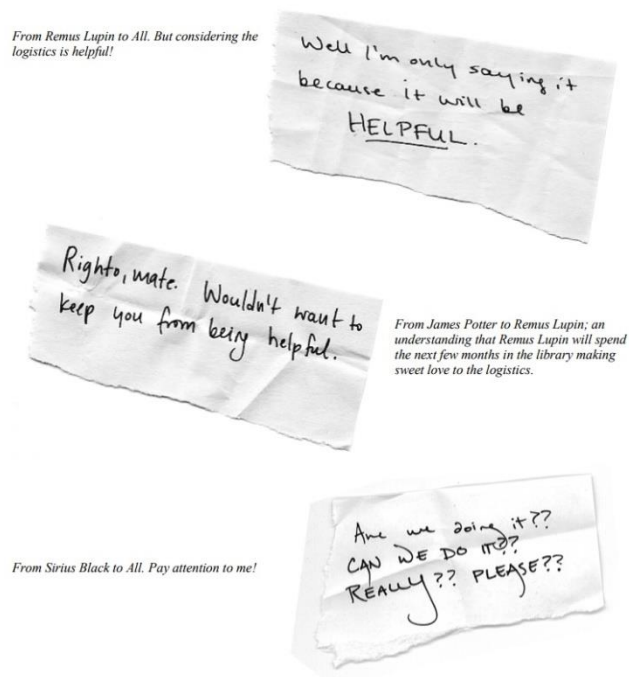 From Remus Lupin to All. But considering the
logistics is helpful!
Well I'm only saying it
because it will be
HELPFUL.
Righto, mate. Wouldn't want to
keep you from being helpful.
From James Potter to Remus Lupin; an
understanding that Remus Lupin will spend
the next few months in the library making
sweet love to the logistics.
From Sirius Black to All. Pay attention to me!
Are we doing it??
CAN WE DO IT??
REALLY?? PLEASE??